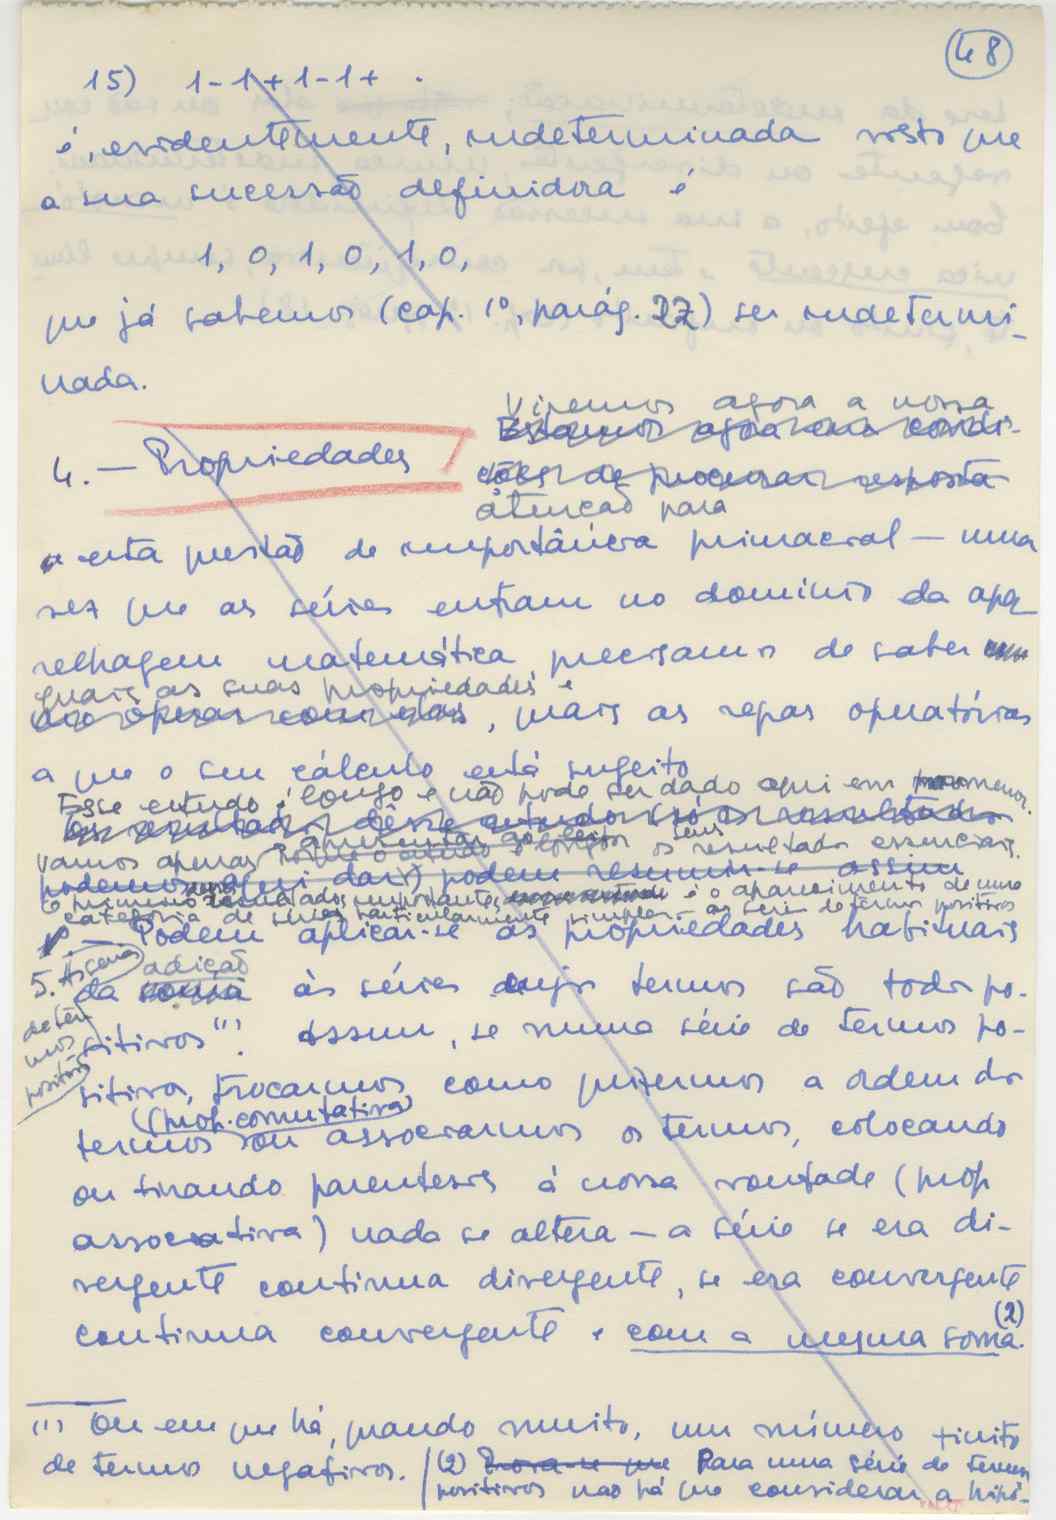 48
15) 1-1+1-1+ .
é, evidentemente, indeterminada visto que
a sua sucessão definidora é
1, 0, 1, 0, 1, 0,
que já sabemos (cap. 1º, parág. 27) ser indetermi-
nada.
Viremos agora a nossa
Estamos agora em condi-
4. — Propriedades
ções de procurar resposta
atenção para
a esta questão de importância primacial — uma
vez que as séries entram no domínio da apa
relhagem matemática, precisamos de saber
quais as suas propriedades e
operar com elas, quais as regras operatórias
a que o seu cálculo está sugeito
Esse estudo é longo e não pode ser dado aqui em pormenor.
Os resultados dêsse estudo (só os resultados
apresentar ao leitor seus
vamos apenas porque o estudo é longo os resultados essenciais.
podemos aqui dar) podem resumir-se assim
O primeiro resultado importante, é o aparecimento de uma
categoria de séries particularmente simples — as séries de termos positivos
— Podem aplicar-se as propriedades habituais
5. As séries de têrmos positivos
adição
da soma às séries cujos termos são todos po-
sitivos (1). Assim, se numa série de termos po-
sitivos, trocarmos como quizermos a ordem dos
(prop. comutativa)
termos ou associarmos os termos, colocando
ou tirando parenteses à nossa vontade (prop
associativa) nada se altera — a série se era di-
vergente continua divergente, se era convergente
continua convergente e com a mesma soma. (2)
(1) Ou em que há, quando muito, um número finito
de termos negativos.
(2) Prova-se que Para uma série de termos
positivos não há que considerar a hipó-